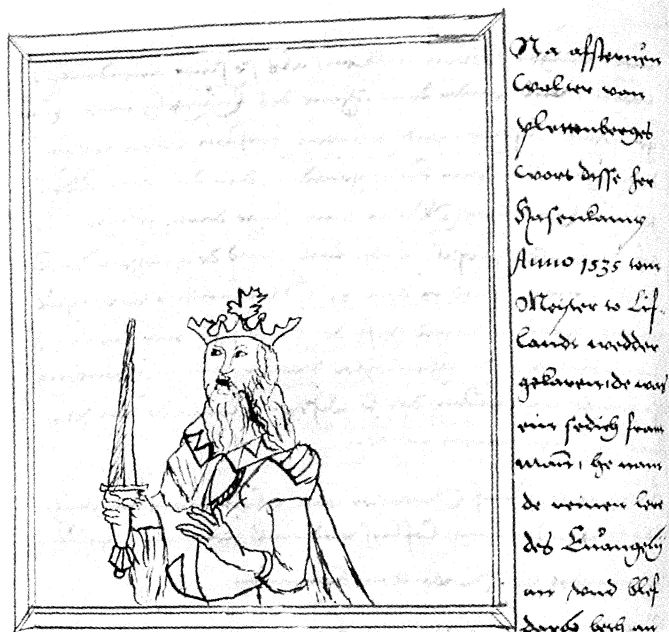 Na afsteruen
Wolter van
Plettenberges
wort disse her
Hasenkamp
Anno 1535 tom
Meister to Lif-
landt wedder
gekaren, de was
ein sedich fram
man, he nam
de reinen lere
des Euangelij
an vnd blef